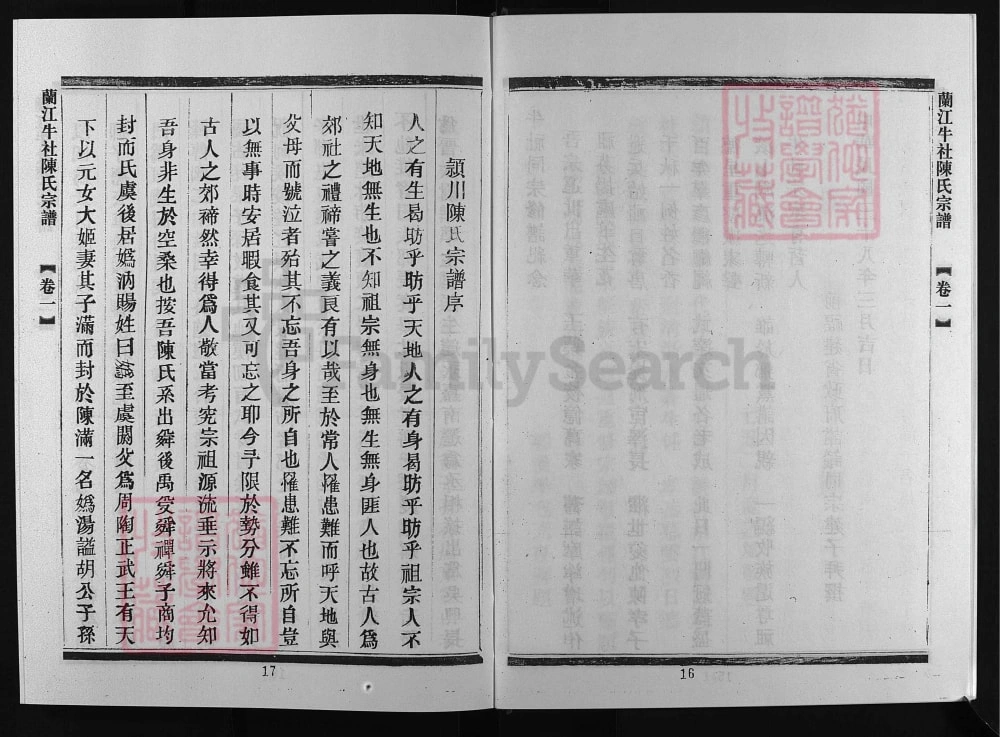 蘭江牛社陳氏宗譜
【卷一】
16
潁川陳氏宗譜序
人之有生曷昉乎昉乎天地人之有身曷昉乎昉乎祖宗人不
知天地無生也不知祖宗無身也無生無身匪人也故古人爲
郊社之禮禘嘗之義良有以哉至於常人罹患難而呼天地與
父母而號泣者殆其不忘吾身之所自也罹患難不忘所自豈
以無事時安居暇食其又可忘之耶今予限於勢分雖不得如
古人之郊禘然幸得爲人敬當考究宗祖源流垂示將來允知
吾身非生於空桑也按吾陳氏系出舜後禹受舜禪舜子商均
封而氏虞後居媯汭賜姓曰媯至虞閼父爲周陶正武王有天
下以元女大姬妻其子滿而封於陳滿一名媯湯謚胡公子孫
蘭江牛社陳氏宗譜
【卷一】
17
FamilySearch